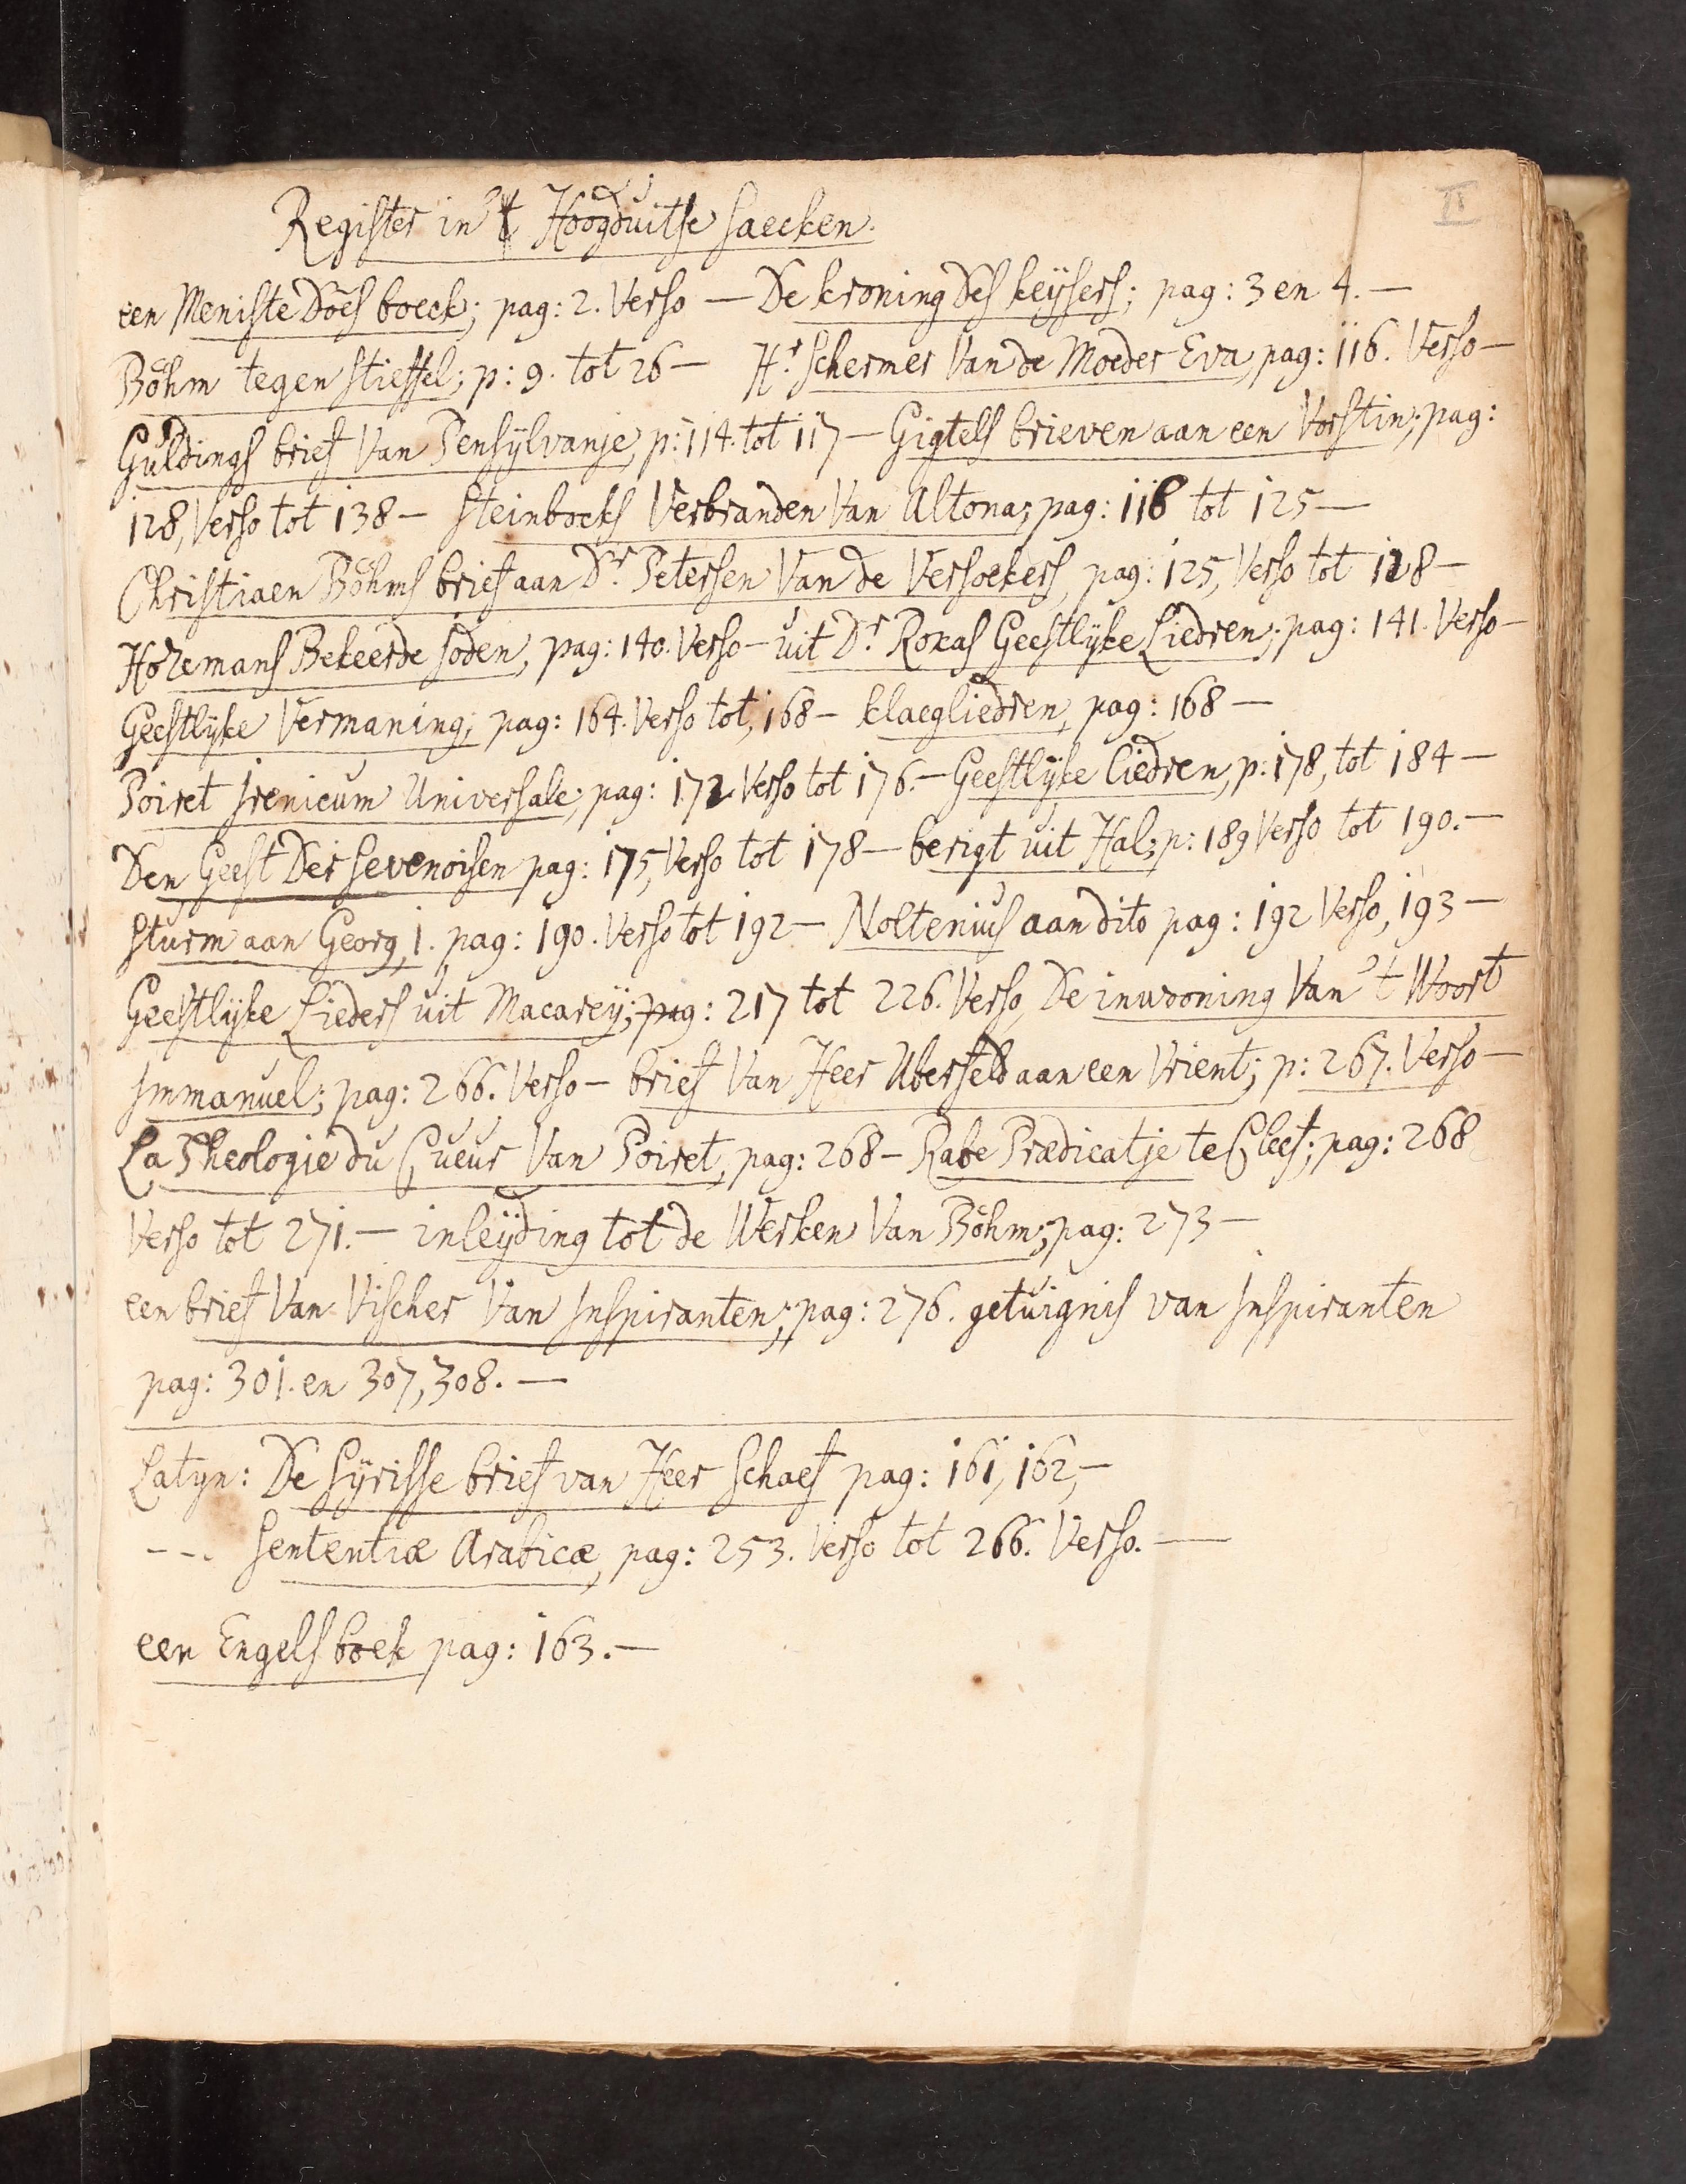 II
Register in 't Hoogduitse saecken.
een Meniste Does boeck; pag: 2. Verso — De kroning Des keysers; pag: 3 en 4. —
Böhm tegen stieffel; p: 9. tot 26 — Hr. Schermer Van de Moeder Eva, pag: 116. Verso —
Güldings brief Van Pensÿlvanje, p: 114. tot 117 — Gigtels brieven aan een Vorstin; pag:
128, Verso tot 138 — Steinbocks Verbranden Van Altona; pag: 118 tot 125 —
Christiaen Böhms brief aan Dr. Petersen Van de Versoekers, pag: 125, Verso tot 128 —
Horemans Bekeerde Joden, pag: 140. Verso — uit Dr. Roxas Geestlÿke Liedren; pag: 141. Verso —
Geestlÿke Vermaning; pag: 164. Verso tot, 168 — klaegliedren, pag: 168 —
Poiret Irenicum Universale; pag: 172 Verso tot 176. — Geestlÿke liedren, p: 178, tot 184 —
Den Geest Der Sevenoisen pag: 175, Verso tot 178 — berigt uit Hal; p: 189 Verso tot 190. —
Sturm aan Georg, 1. pag: 190. Verso tot 192 — Noltenius aan dito pag: 192 Verso, 193 —
Geestlÿke Lieders uit Macareÿ; pag: 217 tot 226. Verso, De inwooning Van 't Woort
Immanuel; pag: 266. Verso — brief Van Heer Uberfeld aan een Vrient; p: 267. Verso —
La Theologie du Cueur Van Poiret, pag: 268 — Rabe Prædicatje te Cleef; pag: 268
Verso tot 271. — inleÿding tot de Werken Van Böhm; pag: 273 —
een brief Van Vischer Van Inspiranten; pag: 276. getuignis van Inspiranten
pag: 301. en 307, 308. —
Latyn: De Sÿrisse brief van Heer Schaef pag: 161, 162, —
--- Sententiæ Arabicæ, pag: 253. Verso tot 266. Verso. —
een Engels boek pag: 163. —